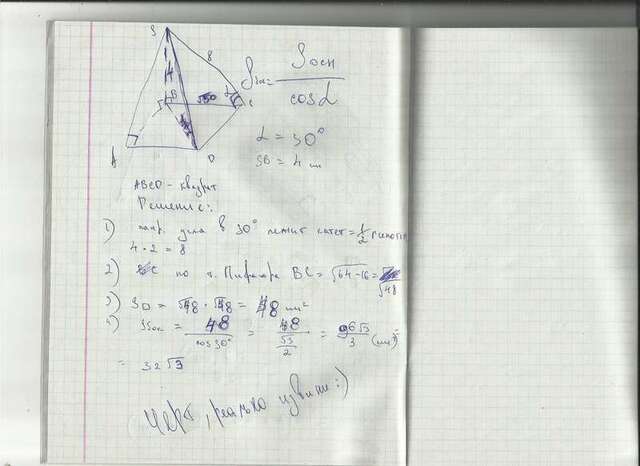 S
8
4
B
√50
α
C
A
D
Sбок = Sосн / cosα
α = 30°
SB = 4 см
ABCD - квадрат
Решение:
1) напр. угла в 30° лежит катет = 1/2 гипотен
4 · 2 = 8
2) BC по т. Пифагора BC = √64-16 = √48
3) SD = √48 · √48 = 48 см²
4) Sбок = 48 / cos30° = 48 / (√3/2) = 96√3 / 3 (см²) =
= 32√3
Черт, реально извини :)